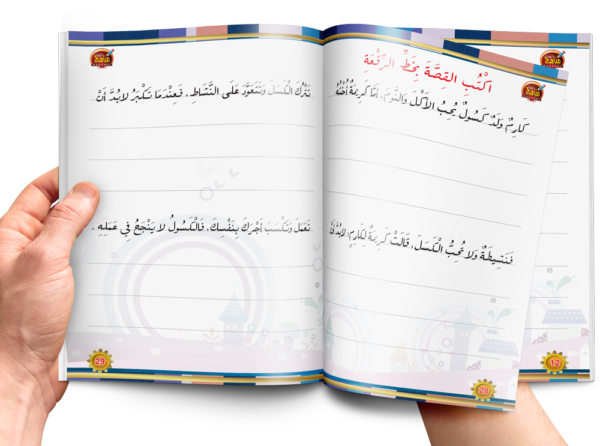 اكْتُبِ القِصَّةَ بِخَطِّ الرُّقْعَةِ
كَارِمٌ وَلَدٌ كَسُولٌ يُحِبُّ الأَكْلَ وَالنَّوْمَ، أَمَّا كَرِيمَةُ أُخْتُهُ
فَنَشِيطَةٌ وَلا تُحِبُّ الْكَسَلَ، قَالَتْ كَرِيمَةُ لِكَارِمٍ: لابُدَّ أَنْ
28
نَتْرُكَ الْكَسَلَ وَنَتَعَوَّدَ عَلَى النَّشَاطِ، فَعِنْدَمَا تَكْبَرُ لابُدَّ أَنْ
تَعْمَلَ وَتَكْسَبَ أَجْرَكَ بِنَفْسِكَ، فَالْكَسُولُ لا يَنْجَحُ فِي عَمَلِهِ.
29
12